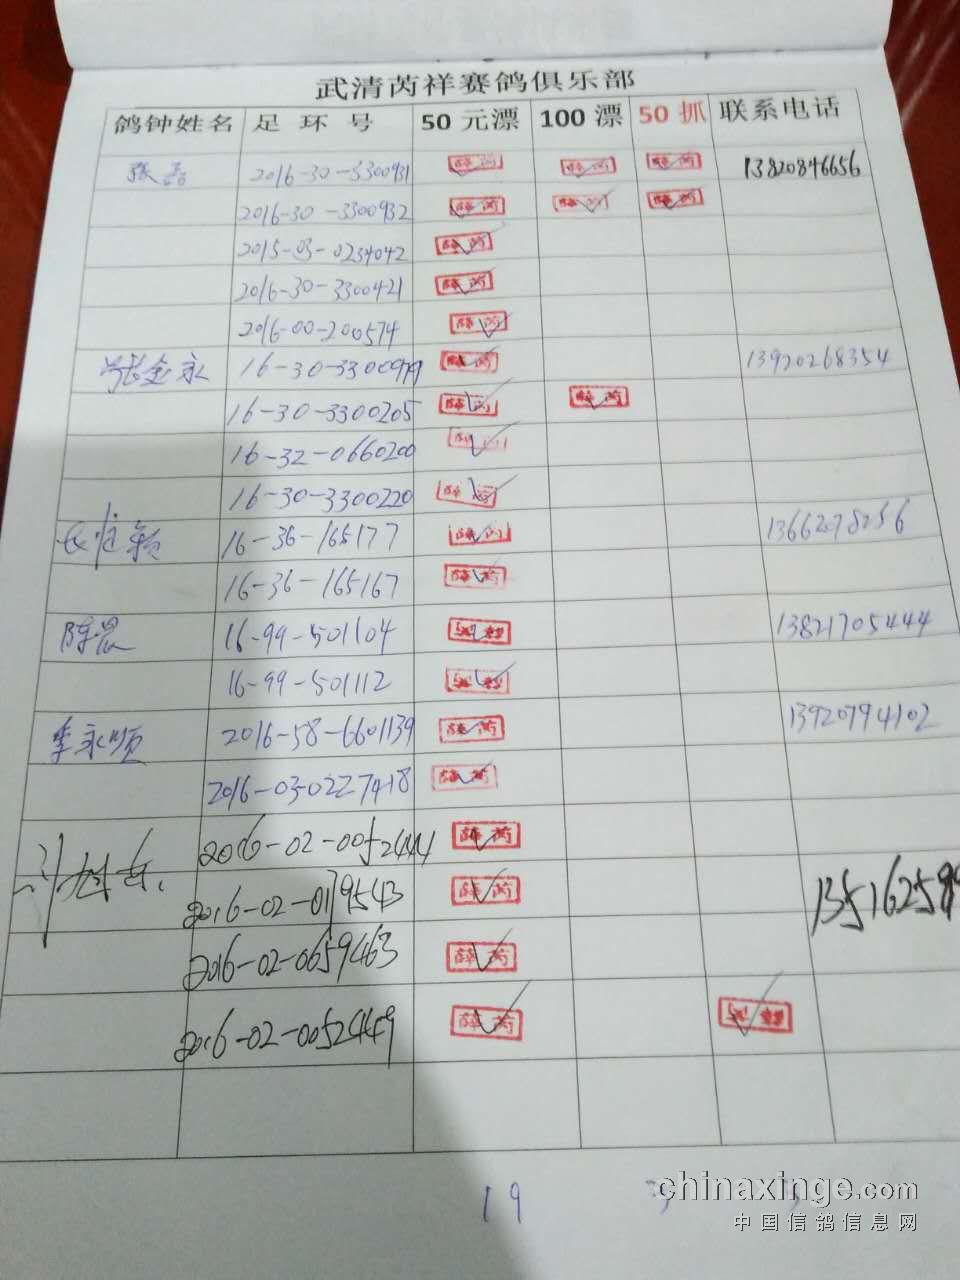 武清芮祥赛鸽俱乐部
鸽钟姓名 足环号 50元漂 100漂 50抓 联系电话
张 2016-30-3300931 薛芮 薛芮 薛芮 13820846656
2016-30-3300932 薛芮 薛芮 薛芮
2015-03-0234042 薛芮
2016-30-3300421 薛芮
2016-00-200574 薛芮
张金永 16-30-3300979 薛芮 13920268354
16-30-3300205 薛芮 薛芮
16-32-0660200 薛芮
16-30-3300220 薛芮
16-36-165177 薛芮 13662078256
16-36-165167 薛芮
陈 16-99-501104 13821705444
16-99-501112
李永顺 2016-58-6601139 薛芮 13920794102
2016-03-0227418 薛芮
2016-02-0052444 薛芮
2016-02-0179543 薛芮 135162589
2016-02-0659463 薛芮
2016-02-0052449 薛芮
19 3
chinaxinge.com
中国信鸽信息网